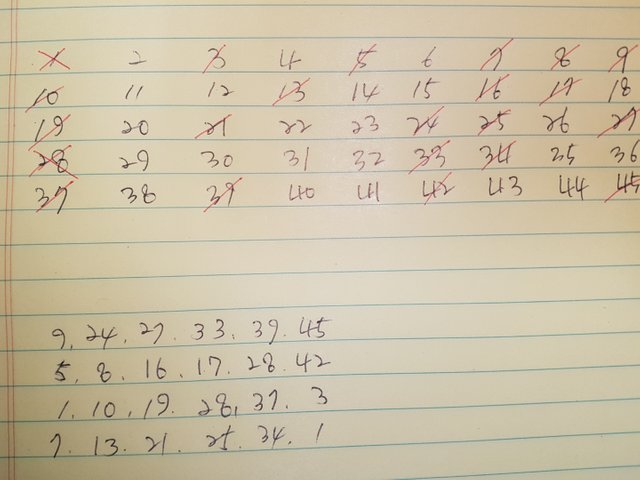 1 2 3 4 5 6 7 8 9
10 11 12 13 14 15 16 17 18
19 20 21 22 23 24 25 26 27
28 29 30 31 32 33 34 35 36
37 38 39 40 41 42 43 44 45
9, 24, 27. 33. 39. 45
5, 8. 16. 17. 28. 42
1. 10, 19. 28, 37. 3
7. 13. 21. 25. 34. 1